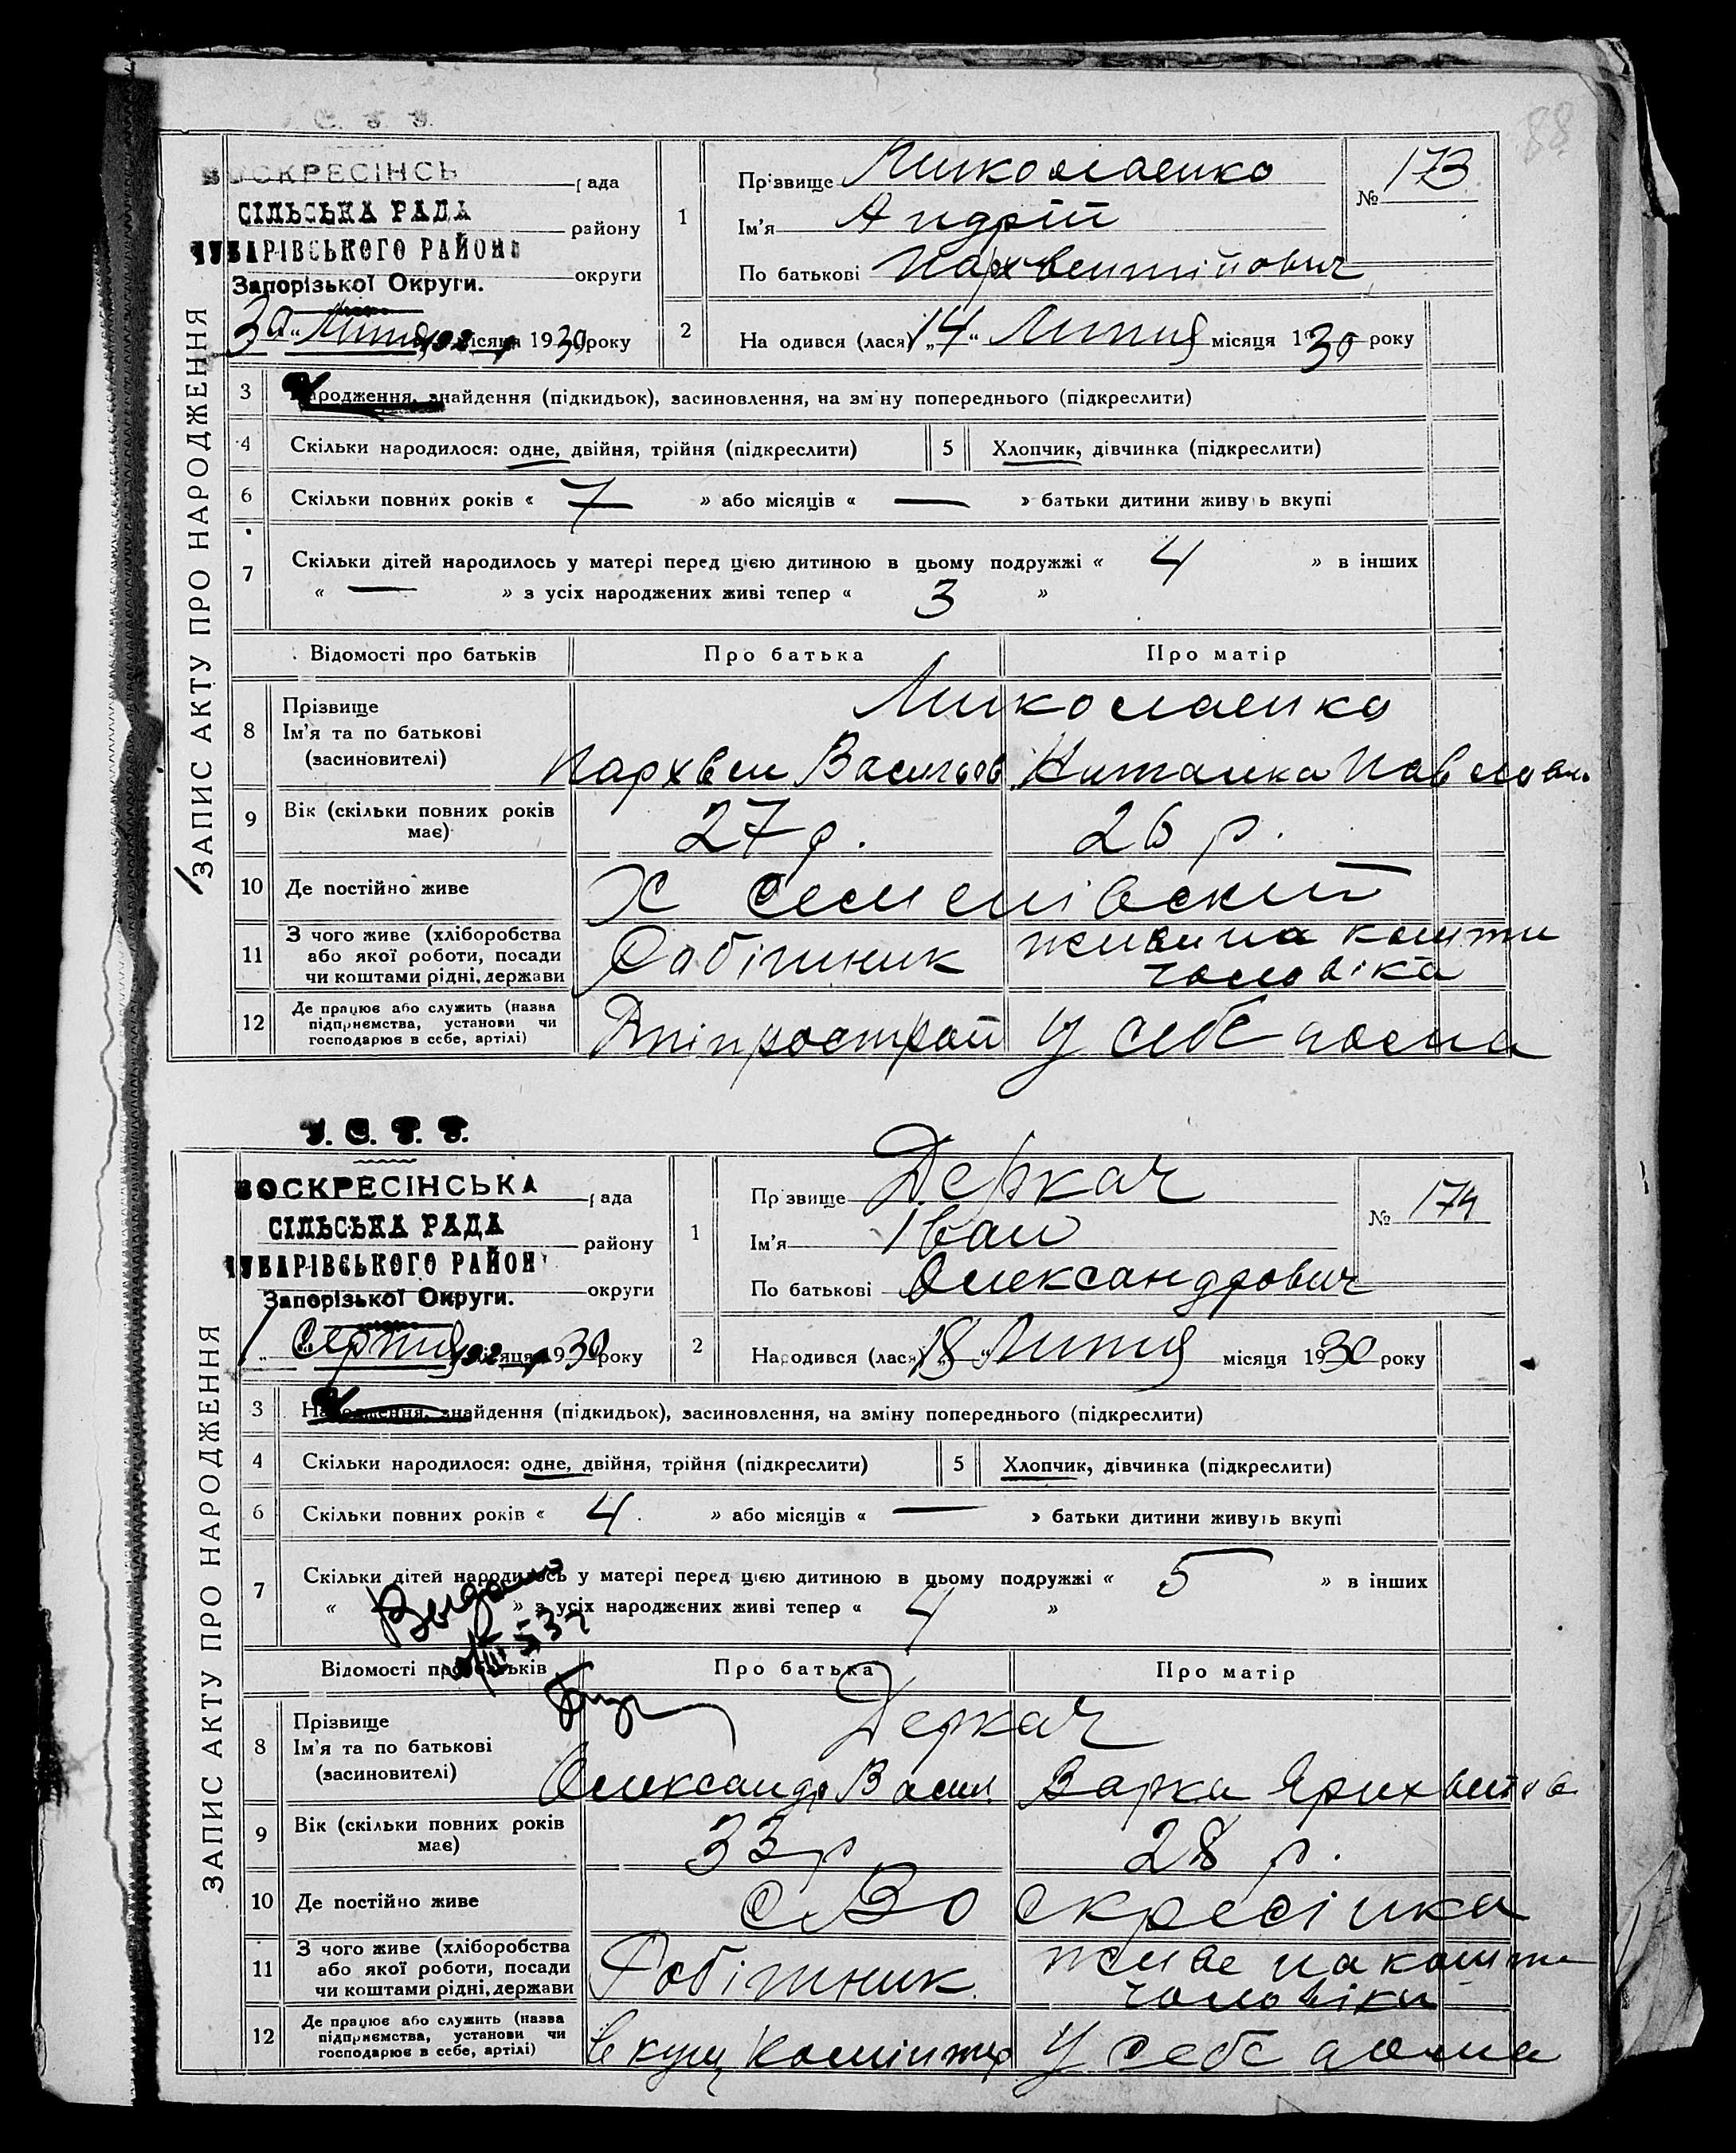 88
ЗАПИС АКТУ ПРО НАРОДЖЕННЯ
ВОСКРЕСІНСЬ рада
СІЛЬСЬКА РАДА
ЧУБАРІВСЬКОГО РАЙОНУ району
Запорізької Округи. округи
30 „ Липня місяця 1930 року
1 Прізвище Миколаенко
№ 173
Ім'я Андрій
По батькові Пархвентійович
2 Народився (лася) „14“ Липня місяця 1930 року
3 Народження, знайдення (підкидьок), засиновлення, на зміну попереднього (підкреслити)
4 Скільки народилося: одне, двійня, трійня (підкреслити) 5 Хлопчик, дівчинка (підкреслити)
6 Скільки повних років « 7 » або місяців « — » батьки дитини живуть вкупі
7 Скільки дітей народилось у матері перед цією дитиною в цьому подружжі « 4 » в інших
« — » з усіх народжених живі тепер « 3 »
Відомості про батьків Про батька Про матір
8 Прізвище
Ім'я та по батькові
(засиновителі)
Миколаенко
Пархвен Васильов
Павлов
9 Вік (скільки повних років має) 27 р. 26 р.
10 Де постійно живе Х Семенівский
11 З чого живе (хліборобства або якої роботи, посади чи коштами рідні, держави Робітник
на кошти
чоловіка
12 Де працює або служить (назва підприємства, установи чи господарює в себе, артілі) Дніпрострой У себе дома
У. С. Р. Р.
ЗАПИС АКТУ ПРО НАРОДЖЕННЯ
ВОСКРЕСІНСЬКА рада
СІЛЬСЬКА РАДА
ЧУБАРІВСЬКОГО РАЙОНУ району
Запорізької Округи. округи
1 „ Серпня місяця 1930 року
1 Прізвище Деркач
№ 174
Ім'я Іван
По батькові Олександрович
2 Народився (лася) „18“ Липня місяця 1930 року
3 Народження, знайдення (підкидьок), засиновлення, на зміну попереднього (підкреслити)
4 Скільки народилося: одне, двійня, трійня (підкреслити) 5 Хлопчик, дівчинка (підкреслити)
6 Скільки повних років « 4 » або місяців « — » батьки дитини живуть вкупі
7 Скільки дітей народилось у матері перед цією дитиною в цьому подружжі « 5 » в інших
« » з усіх народжених живі тепер « 4 »
Відомості про батьків Про батька Про матір
8 Прізвище
Ім'я та по батькові
(засиновителі)
Деркач
Олександр Васил. Варка
9 Вік (скільки повних років має) 33 р 28 р.
10 Де постійно живе с Воскресінка
11 З чого живе (хліборобства або якої роботи, посади чи коштами рідні, держави Робітник
живе на кошти
чоловіка
12 Де працює або служить (назва підприємства, установи чи господарює в себе, артілі)
У себе дома